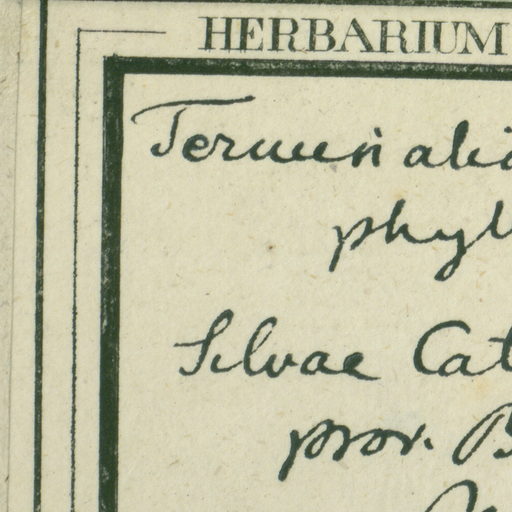 HERBARIUM
Terminalia
phyll
Silvae Cat
prov. B